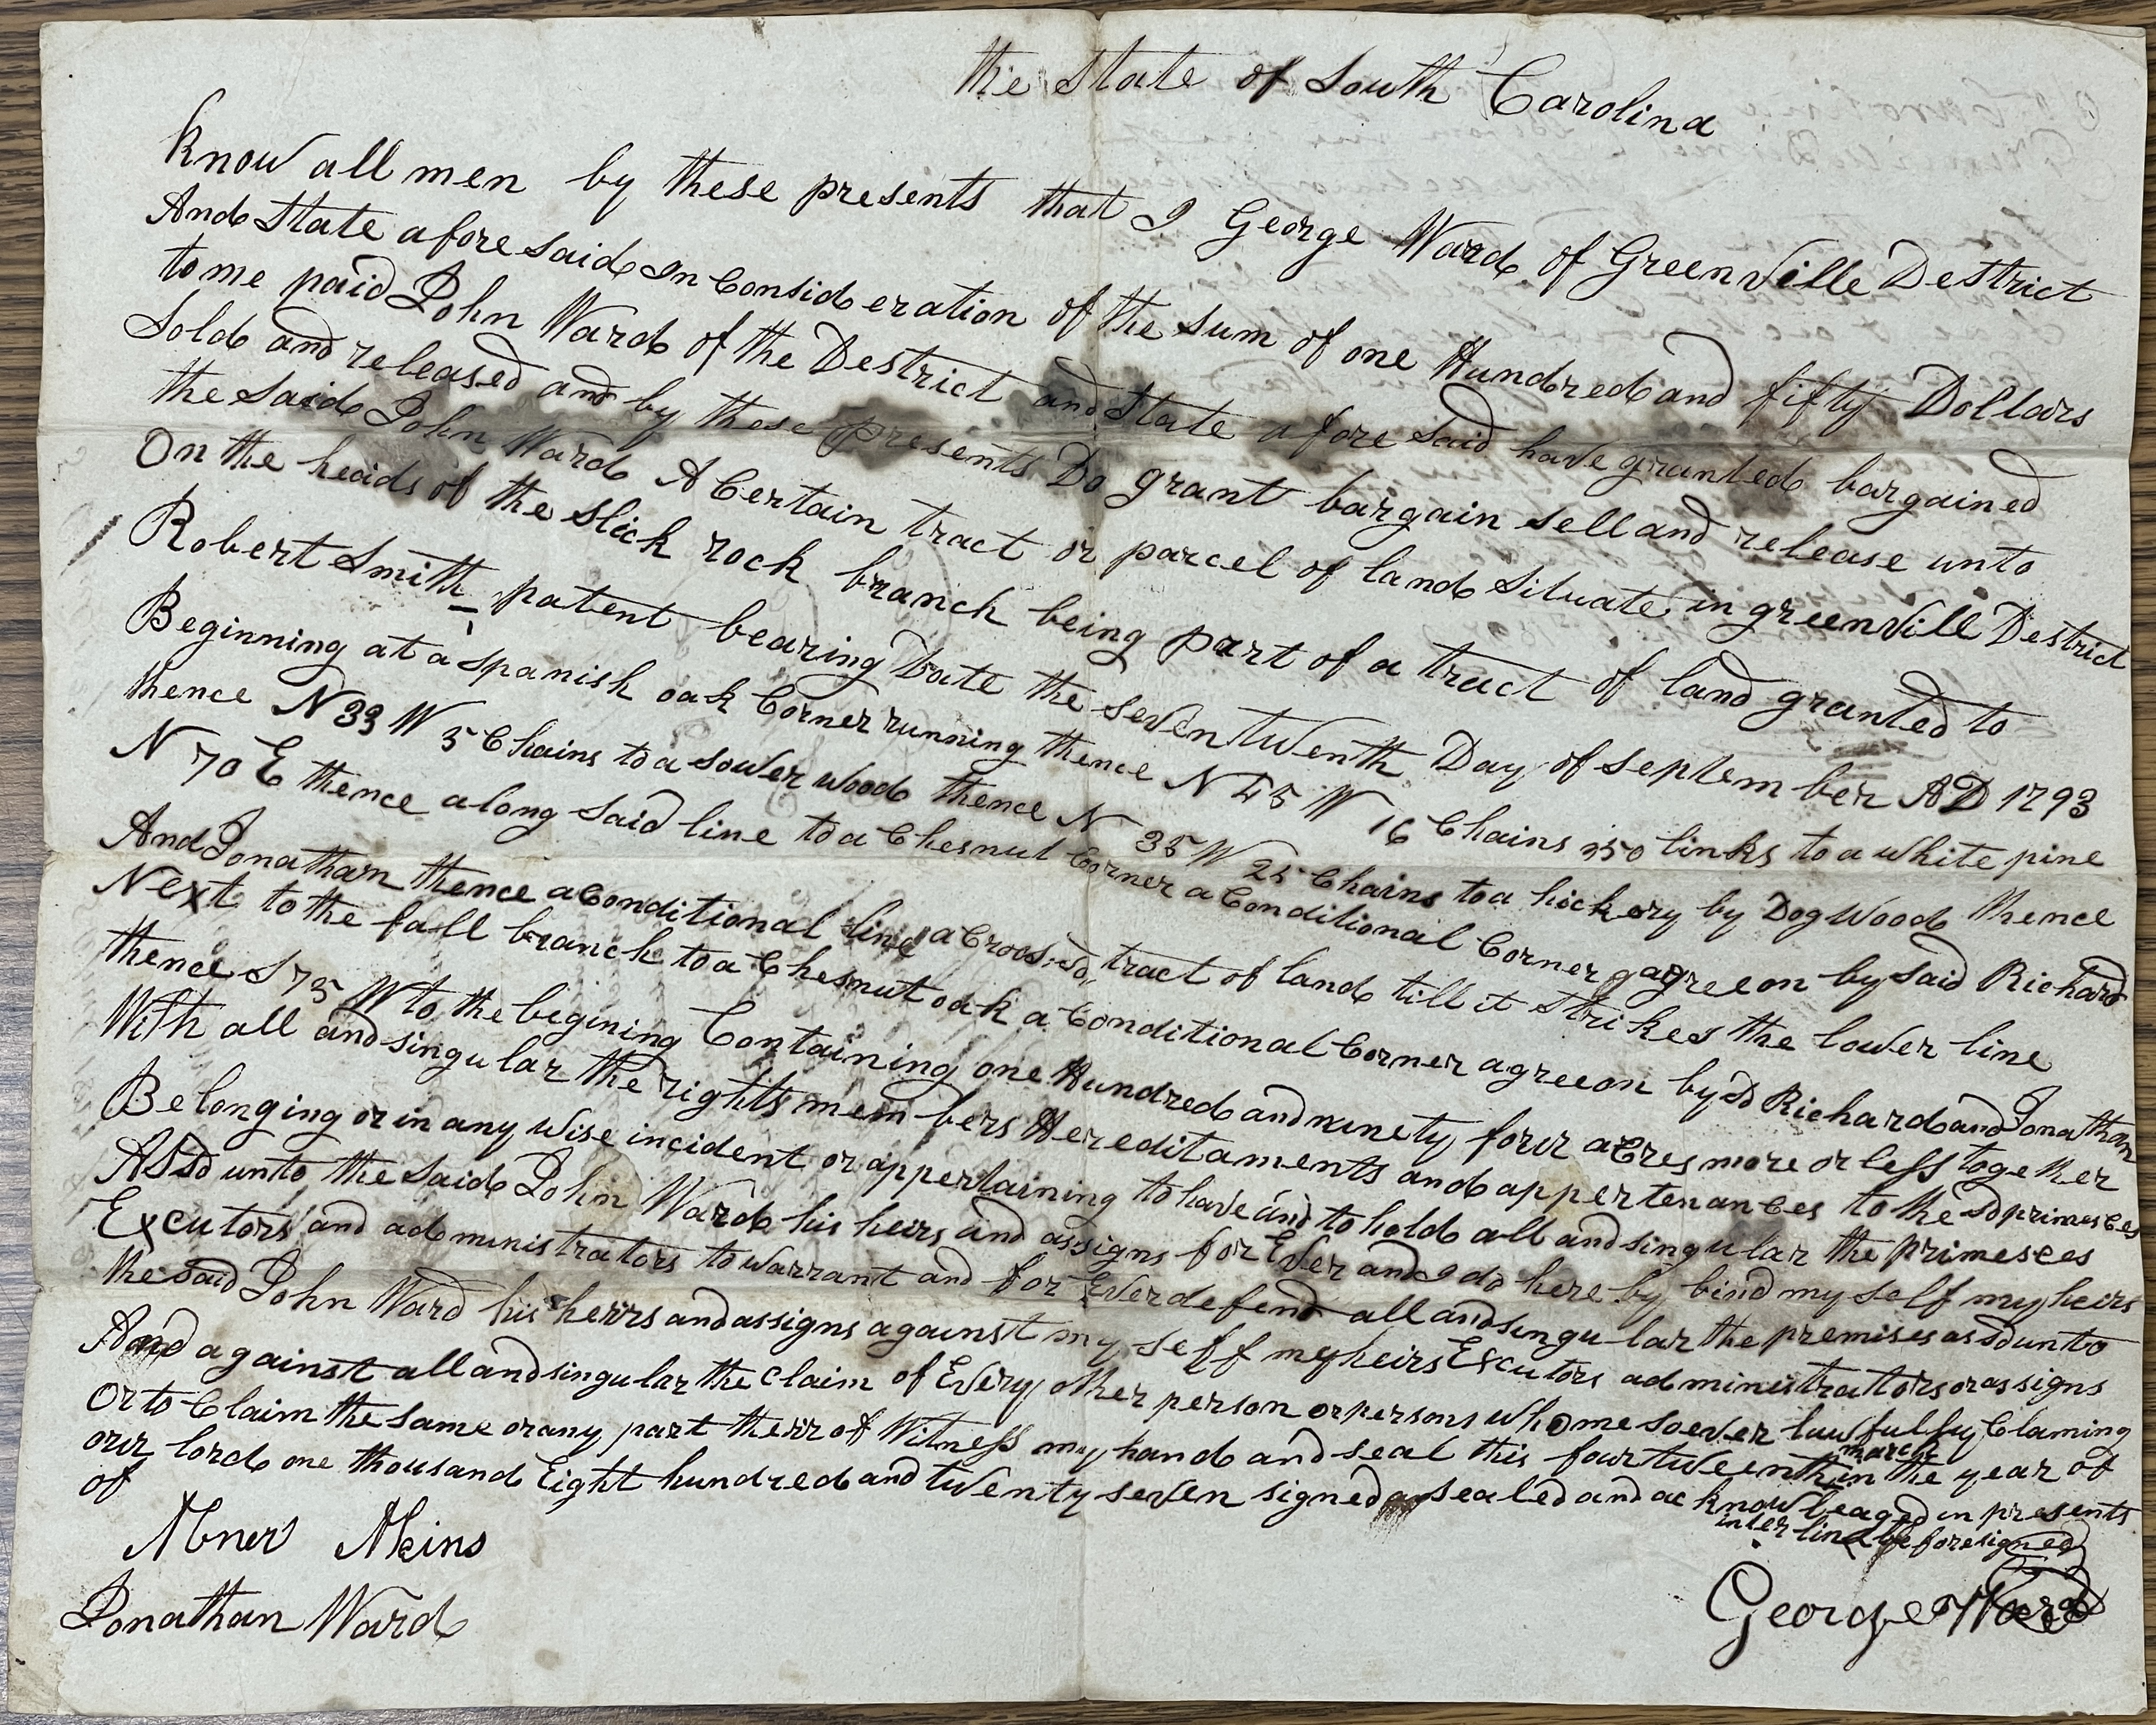 the State of South Carolina
Know all men by these presents that I George Ward of GreenVille Destrict
And State afore said In Consideration of the sum of one Hundred and fifty Dollars
to me paid John Ward of the Destrict and State afore said have granted bargained
Sold and released and by these presents Do grant bargain sell and release unto
the Said John Ward A Certain tract or parcel of land Situate in greenVill Destrict
On the heads of the Slick rock branch being part of a tract of land granted to
Robert Smith patent bearing Date the seventwenth Day of September AD 1793
Beginning at a spanish oak Corner running thence N 45 W 16 Chains 50 links to a white pine
thence N 33 W 5 Chains to a sower wood thence N 35 W 25 Chains to a hickory by Dog Wood thence
N 70 E thence along said line to a Chesnut Corner a Conditional Corner agree on by said Richard
And Jonathan thence a Conditional line a Croos sd tract of land till it Strikes the lower line
Next to the fall branch to a Chesnut oak a Conditional Corner agree on by sd Richard and Jonathan
thence S 75 W to the begining Containing one Hundred and ninety four aCres more or less together
With all and singular the rights members Hereditaments and appertenances to the sd primesces
Belonging or in any wise incident or appertaining to have and to hold all and singular the primesces
ASsd unto the Said John Ward his heirs and assigns for Ever and I do here by bind my self my heirs
Excutors and administrators to warrant and for Ever defend all and singular the premises as sd unto
the said John Ward his heirrs and assigns against my self my heirs Excutors administrators or assigns
And against all and singular the claim of Every other person or persons whomesoever lawfully Claming
Or to Claim the same or any part theirr of Witness my hand and seal this fourtweenth in the year of
march
our lord one thousand Eight hundred and twenty seven signed sealed and acknowleaged in presents
of
inter lined before signed
Abner Akins
George Ward
Jonathan Ward